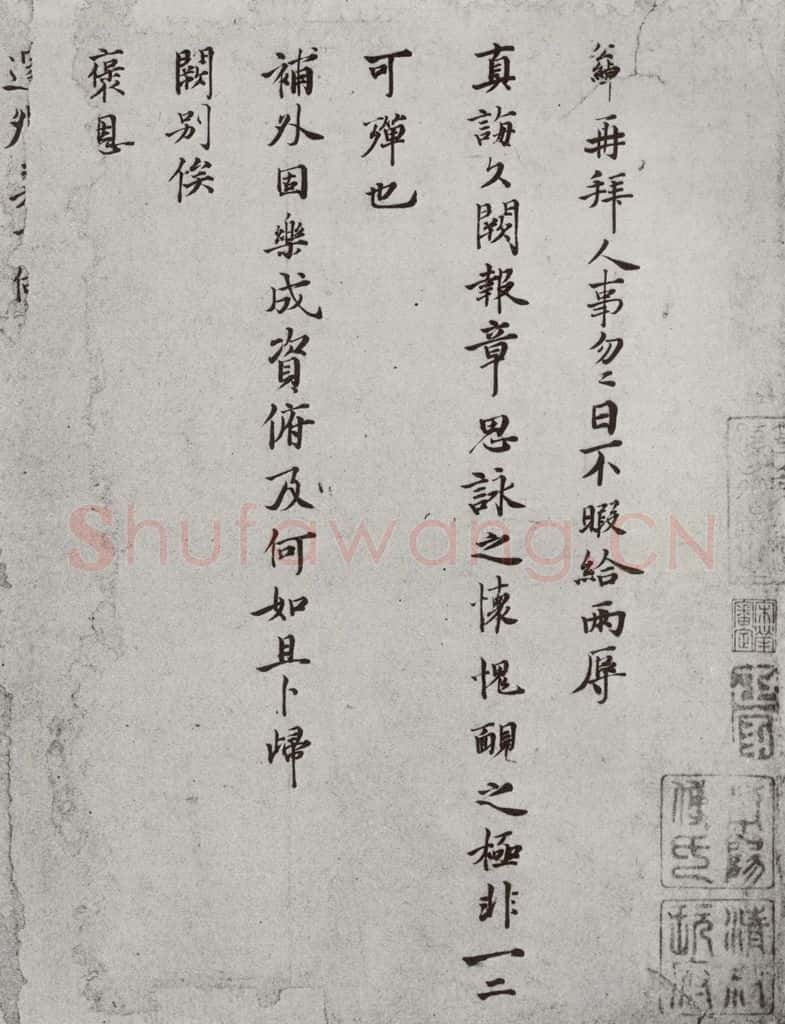 再拜人事勿〻日不暇給兩辱
真誨久闕報章思詠之懷愧靦之極非一二
可殫也
補外固樂成資俯及何如且卜歸
闕別俟
褒恩
Shufawang.CN